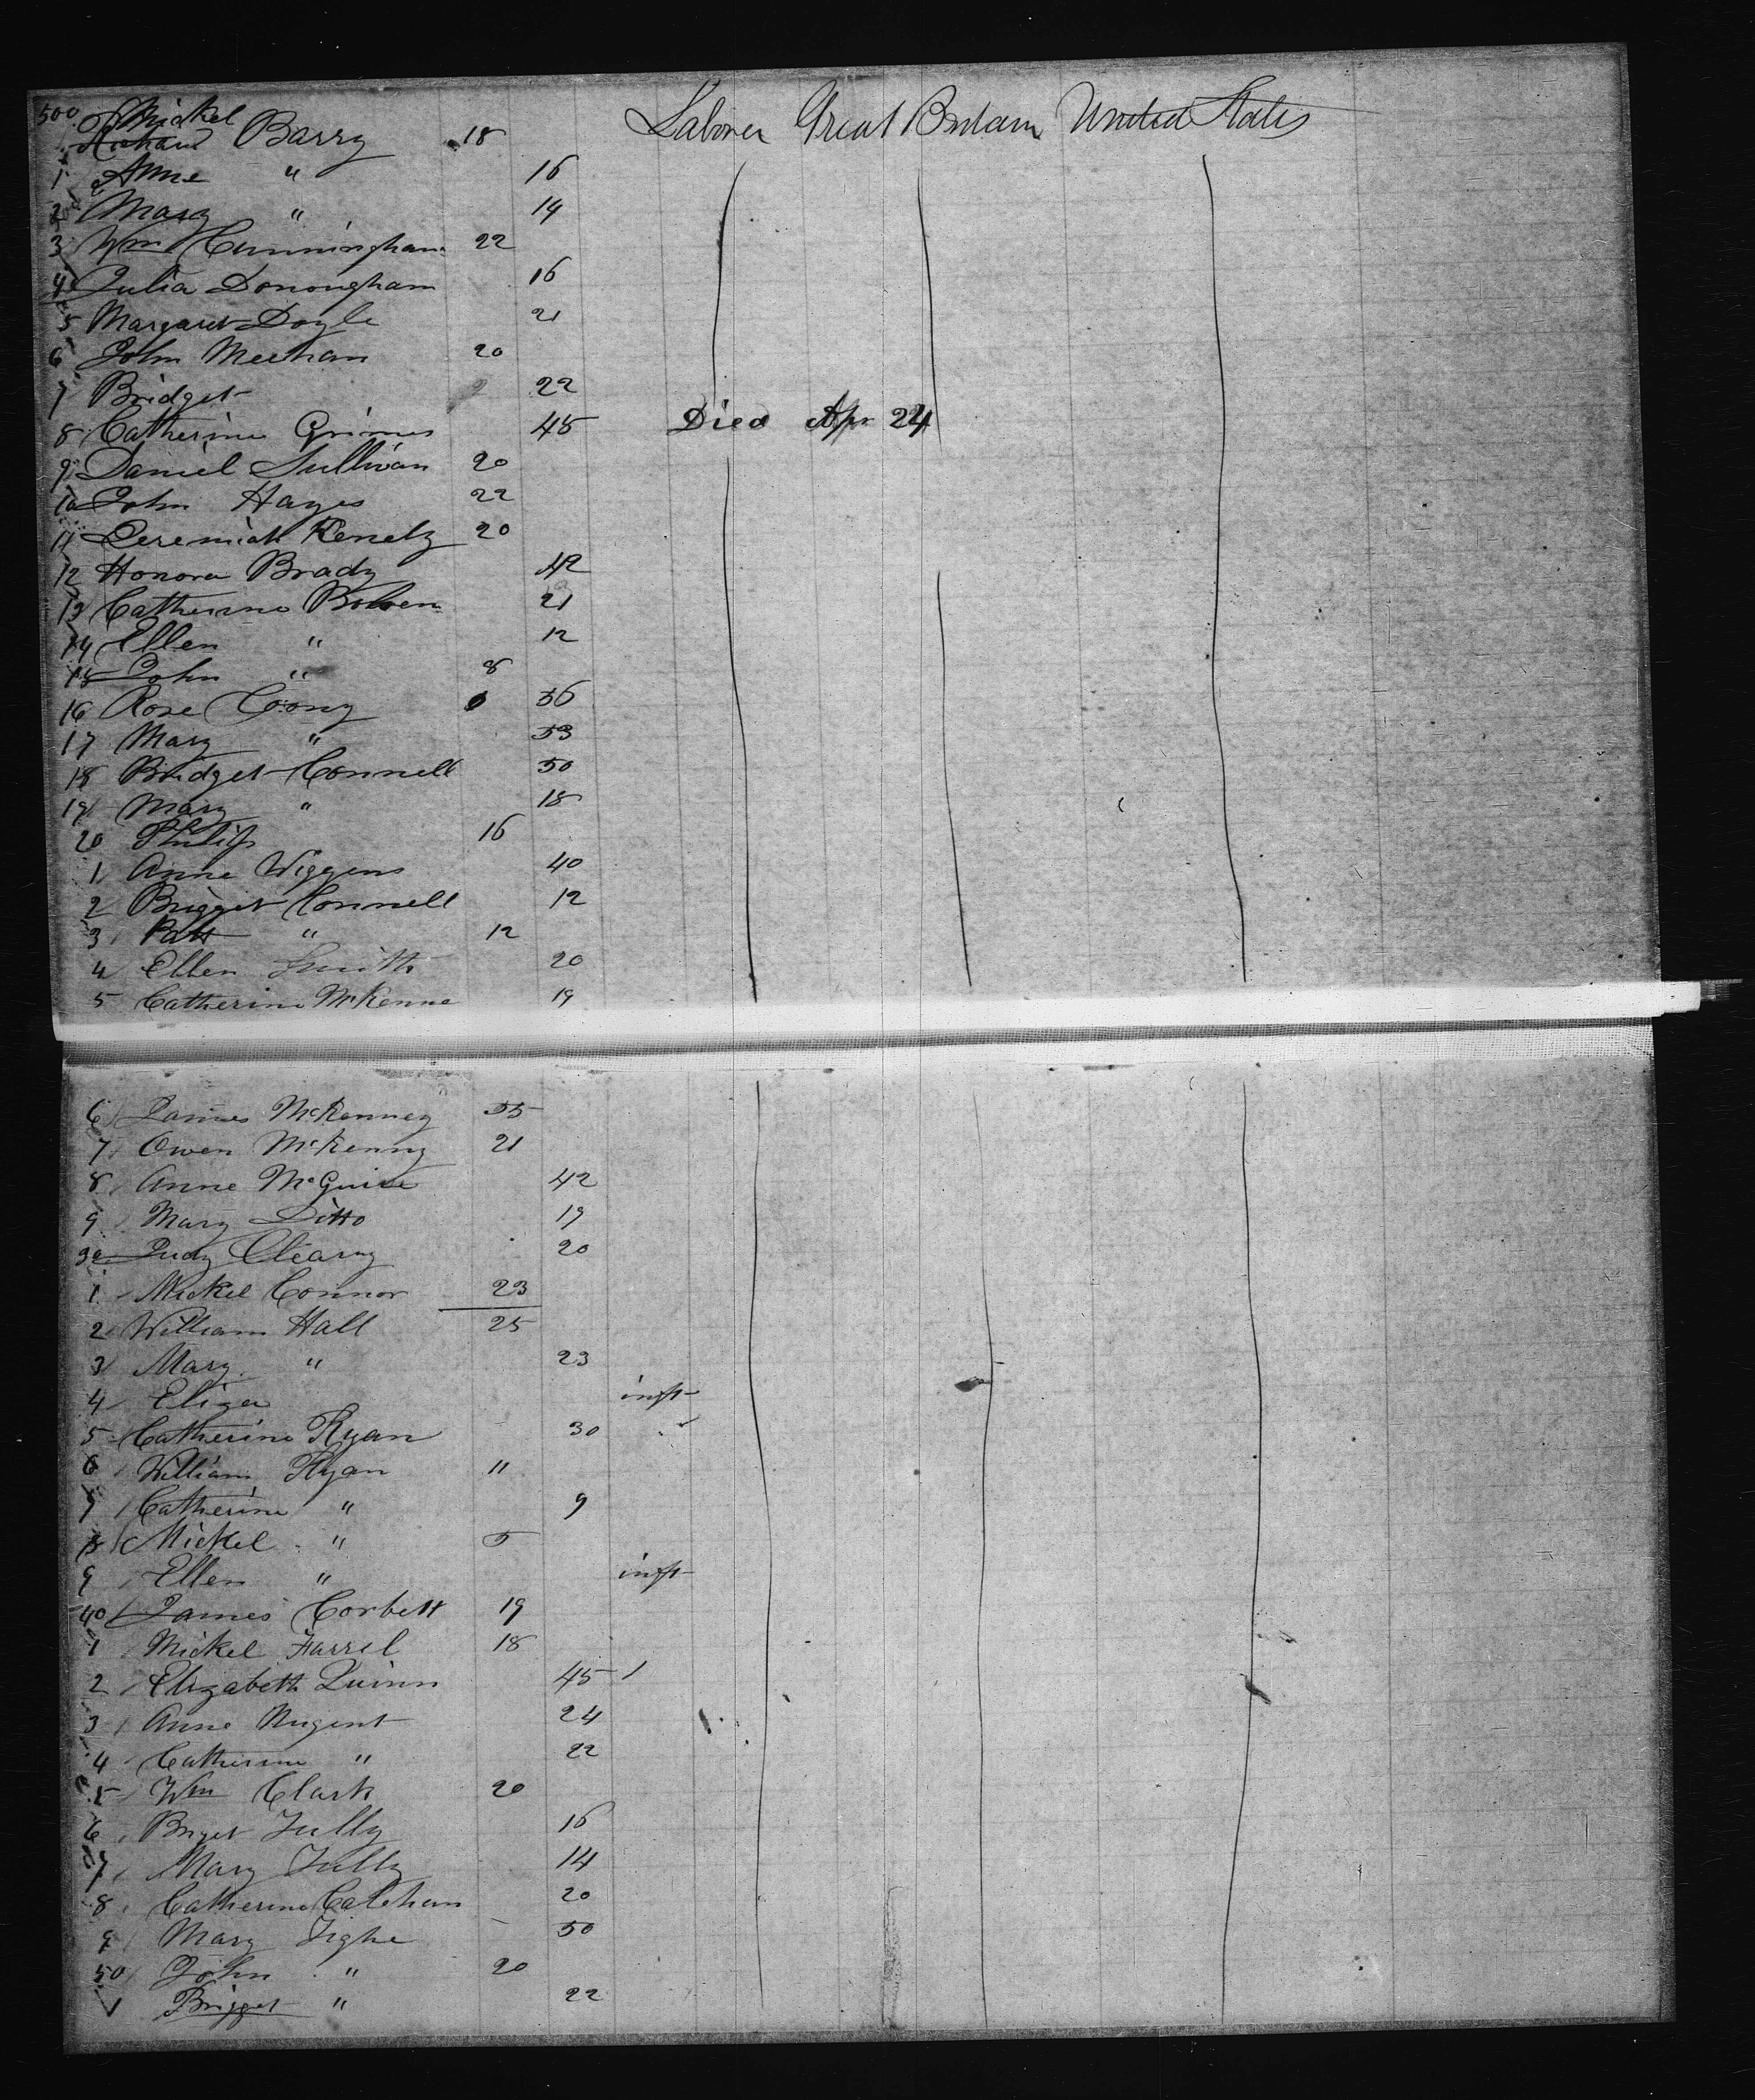 500 Mickel
Barry 18 Laborer Great Britain United States
1 Anne " 16
2 Mary " 14
3 Wm Cunningham 22
4 Julia Donougham 16
5 Margaret Doyle 21
6 John Meehan 20
7 Bridget 22
8 Catherine Grimes 45 Died Apr 24
9 Daniel Sullivan 20
10 John Hayes 22
11 Jeremiah 20
12 Honora Brady 42
13 Catherine Bowen 21
14 Ellen " 12
15 John " 8
16 Rose Coony 56
17 Mary " 53
18 Bridget Connell 50
19 Mary " 18
20 Philip 16
1 Anne Wiggens 40
2 Brigget Connell 12
3 Patt " 12
4 Ellen Smith 20
5 Catherine McKenne 19
6 James McKenney 55
7 Owen McKenny 21
8 Anne McGuire 42
9 Mary Ditto 19
30 Judy Cleary 20
1 Mickel Connor 23
2 William Hall 25
3 Mary " 23
4 Eliza inft
5 Catherine Ryan 30
6 William Ryan 11
7 Catherine " 9
8 Mickel " 5
9 Ellen " inft
40 James Corbett 19
1 Mickel Farrel 18
2 Elizabeth Quinn 45 1
3 Anne Nugent 24
4 Catherine " 22
5 Wm Clark 20
6 Briget Tully 16
7 Mary Tully 14
8 Catherine Calehan 20
9 Mary Tighe 50
50 John " 20
1 Brigget " 22